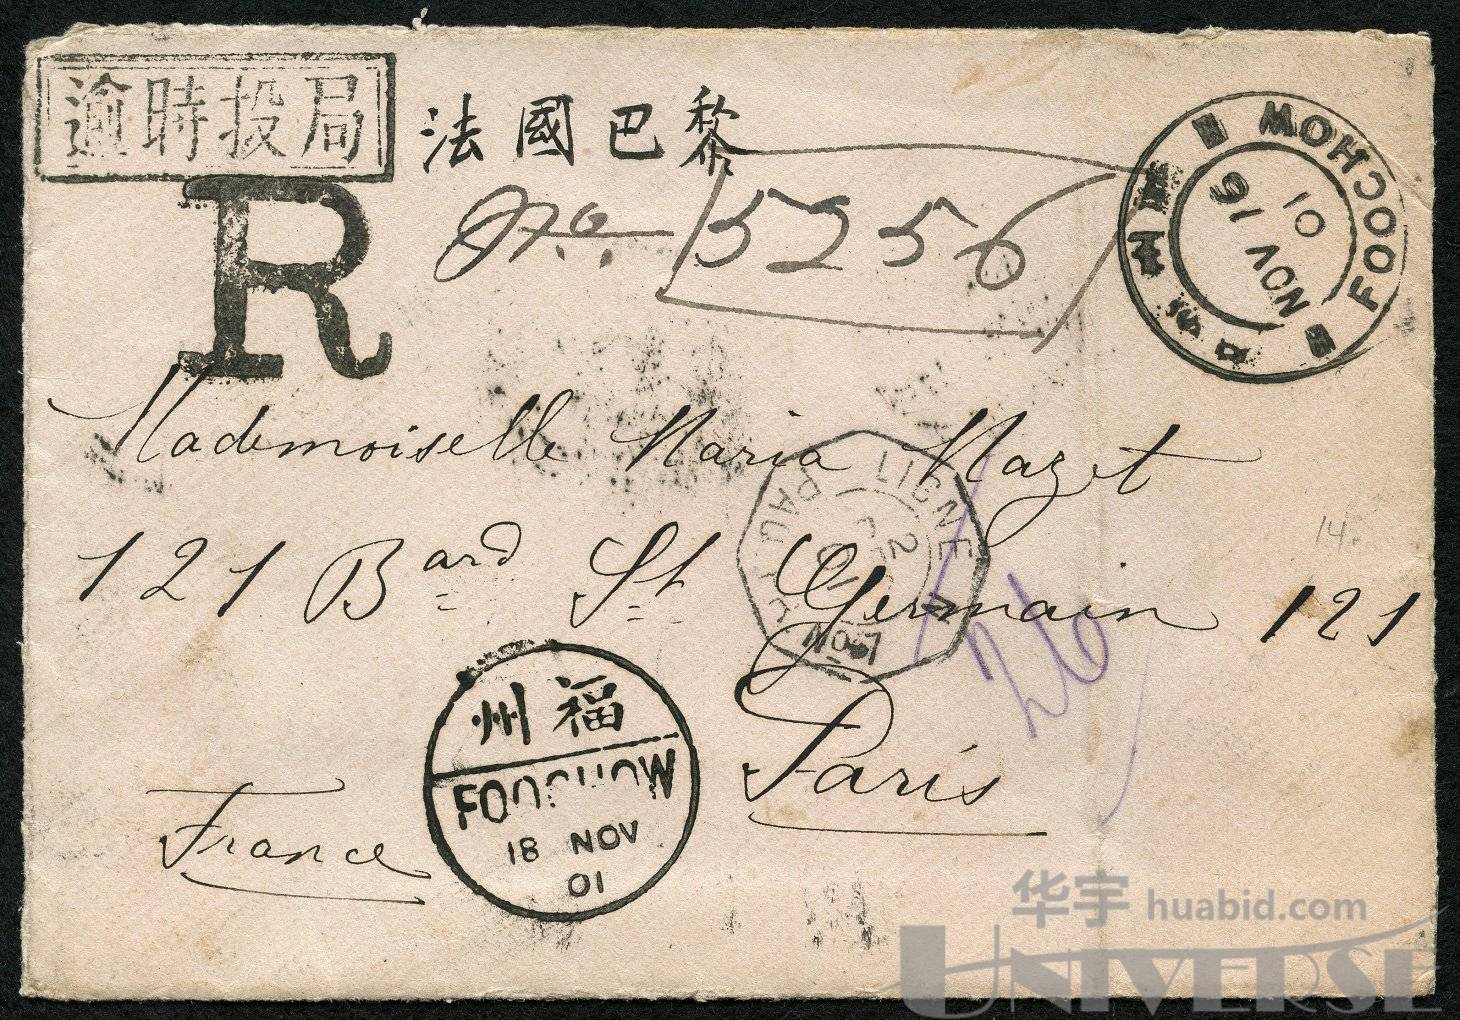 逾時投局
法國巴黎
R
No. 5256
FOOCHOW
NOV 16
01
Mademoiselle Maria Mazet
LIGNE N
PAQ
No 7
121 Bard St Germain 121
14.
26
Paris
France
福州
FOOCHOW
18 NOV
01
华宇 huabid.com
UNIVERSE